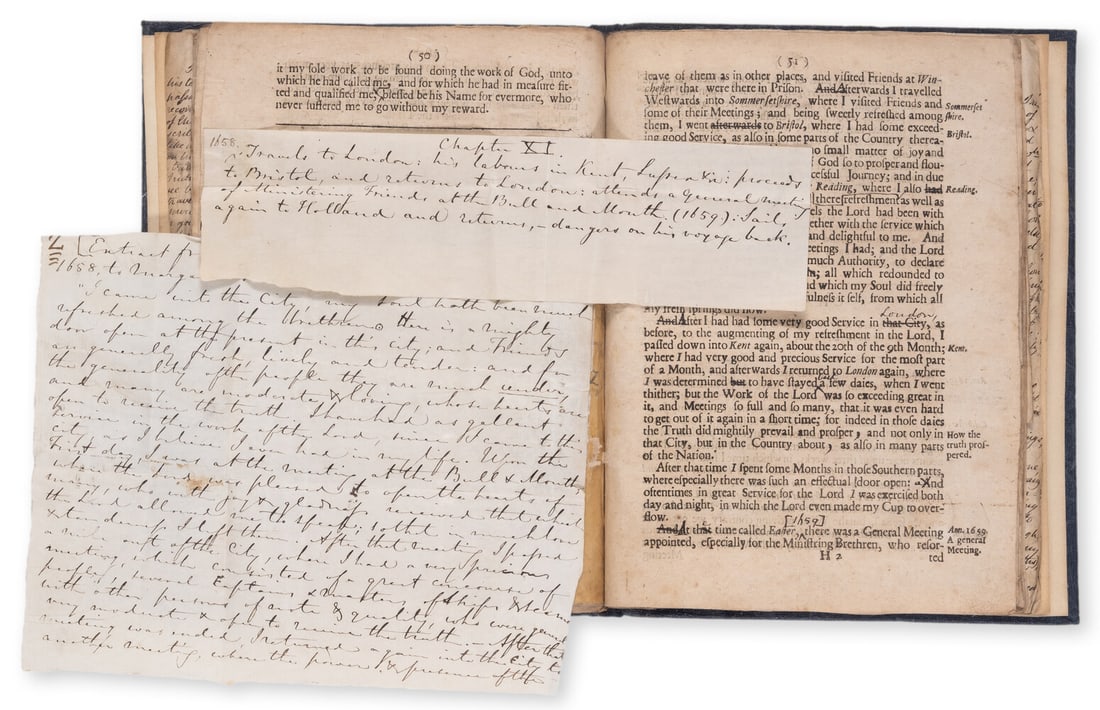 ( 50 )
it my sole work to be found doing the work of God, unto
which he had called me, and for which he had in measure fit-
ted and qualified me, blessed be his Name for evermore, who
never suffered me to go without my reward.
1658.
Chapter XI.
Travels to London: his labours in Kent, Sussex &c: proceeds
to Bristol, and returns to London: attends a General meeting
of Ministering Friends at the Bull and Mouth (1659): Sails
again to Holland and returns,— dangers on his voyage back.
[Extract fr
1658, to Marga
"I came into the City, my soul hath been much
refreshed among the Brethren. Here is a mighty
door open at the present in this city; and Friends
are generally fresh, lively and tender: and for
the generality of the people they are much
and are moderate & loving, whose hearts are
open to receive the truth. I have had as gallant
service in the work of the Lord since I came to this
city, as I believe I ever had in my life. Upon the
First day, I was at the meeting at the Bull & Mouth
when the Lord was pleased to open the hearts of
many, who with joy & gladness received that which
the Lord
After that meeting, I passed
out of the City, where I had a very precious
meeting, which consisted of a great concourse of
people, several Captains & masters of ships & seamen
with other persons of note & quality, who were generally
very moderate & open to receive the truth. After that
meeting was ended, I returned again into the City to
another meeting, where the power & presence of the
( 51 )
leave of them as in other places, and visited Friends at Win-
chester that were there in Prison. And Afterwards I travelled
Westwards into Sommersetshire, where I visited Friends and
some of their Meetings; and being sweetly refreshed among
them, I went afterwards to Bristol, where I had some exceed-
ing good Service, as also in some parts of the Country therea-
no small matter of joy and
f God so to prosper and flou-
cessful Journey; and in due
Reading, where I also had
there refreshment as well as
els the Lord had been with
ether with the service which
and delightful to me. And
eetings I had; and the Lord
much Authority, to declare
; all which redounded to
nd which my Soul did freely
fulness it self, from which all
my fresh springs did flow.
London,
And After I had had some very good Service in that City, as
before, to the augmenting of my refreshment in the Lord, I
passed down into Kent again, about the 20th of the 9th Month;
where I had very good and precious Service for the most part
of a Month, and afterwards I returned to London again, where
I was determined but to have stayed a few daies, when I went
thither; but the Work of the Lord was so exceeding great in
it, and Meetings so full and so many, that it was even hard
to get out of it again in a short time; for indeed in those daies
the Truth did mightily prevail and prosper, and not only in
that City, but in the Country about, as also in many parts
of the Nation.
After that time I spent some Months in those Southern parts,
where especially there was such an effectual door open: And
oftentimes in great Service for the Lord I was exercised both
day and night, in which the Lord even made my Cup to over-
flow.
[1659]
And At that time called Easter, there was a General Meeting
appointed, especially for the Ministring Brethren, who resor-
H 2
ted
Sommerset
shire.
Bristol.
Reading.
Kent.
How the
truth pros-
pered.
Ann. 1659.
A general
Meeting.